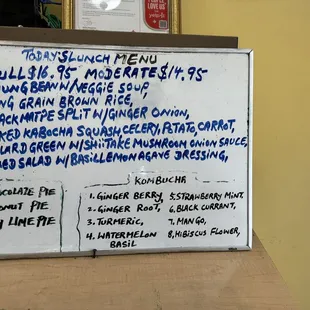 TODAY'S LUNCH MENU
ULL $16.95 MODERATE $14.95
UNG BEAN W/VEGGIE SOUP,
NG GRAIN BROWN RICE,
ACK MATPE SPLIT W/GINGER ONION,
KED KABOCHA SQUASH, CELERY, POTATO, CARROT,
LARD GREEN W/SHIITAKE MUSHROOM ONION SAUCE,
ED SALAD W/BASIL LEMON AGAVE DRESSING,
OCOLATE PIE
ONUT PIE
Y LIME PIE
KOMBUCHA
1. GINGER BERRY,
2. GINGER ROOT,
3. TURMERIC,
4. WATERMELON
BASIL
5. STRAWBERRY MINT,
6. BLACK CURRANT,
7. MANGO,
8. HIBISCUS FLOWER,
LOVE US